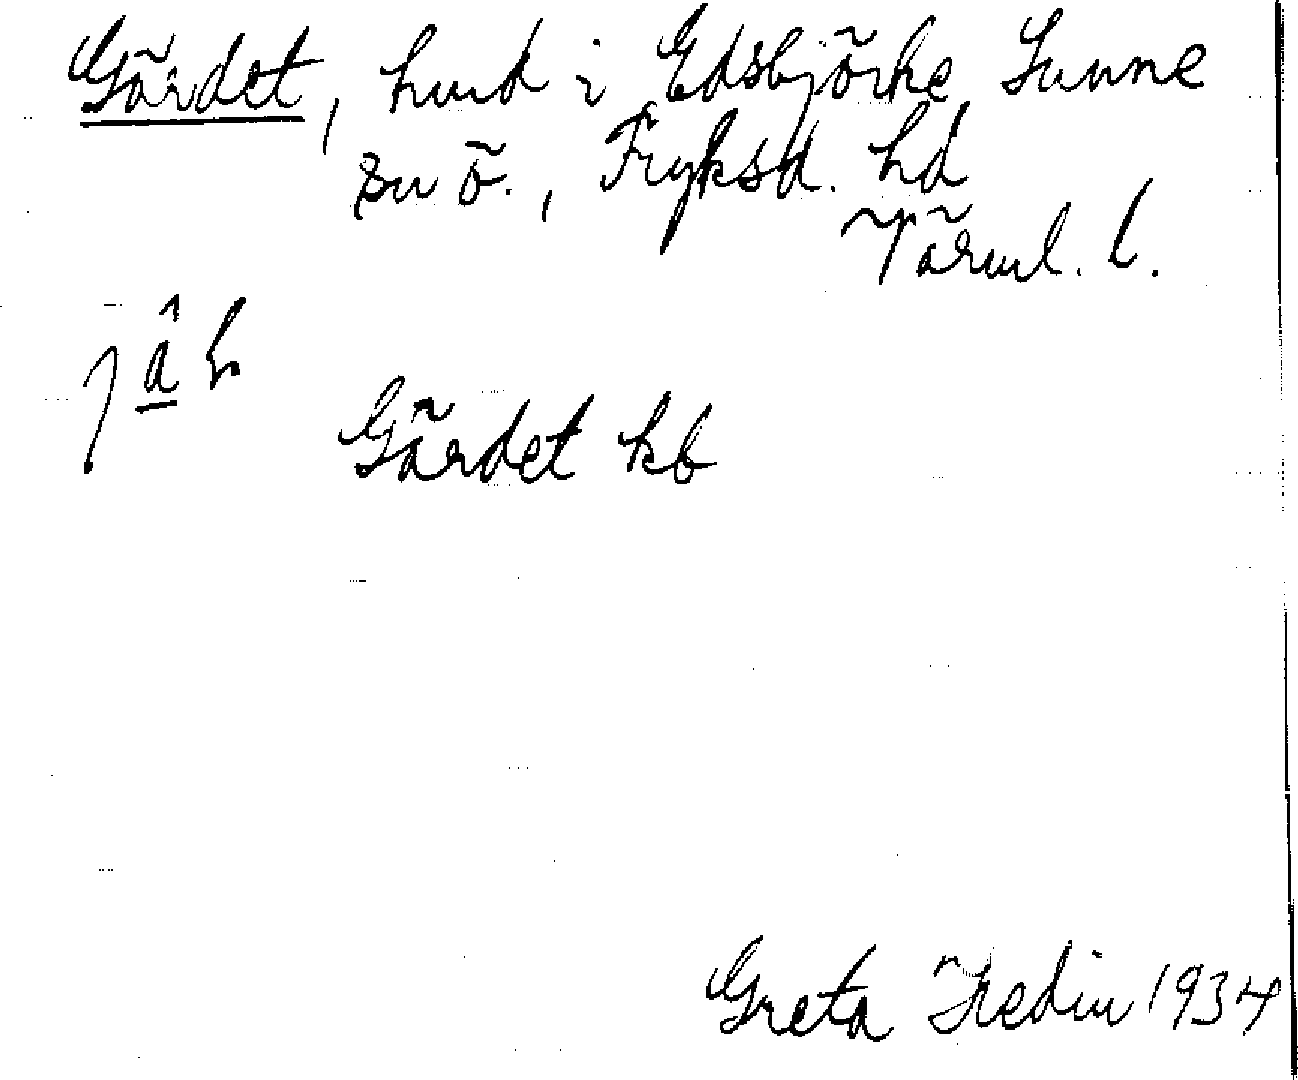 Gärdet, hmd i Edsbjörke, Sunne
sn ö., Fryksd. hd
Värml. l.
Gärdet kb
Greta Hedin 1934